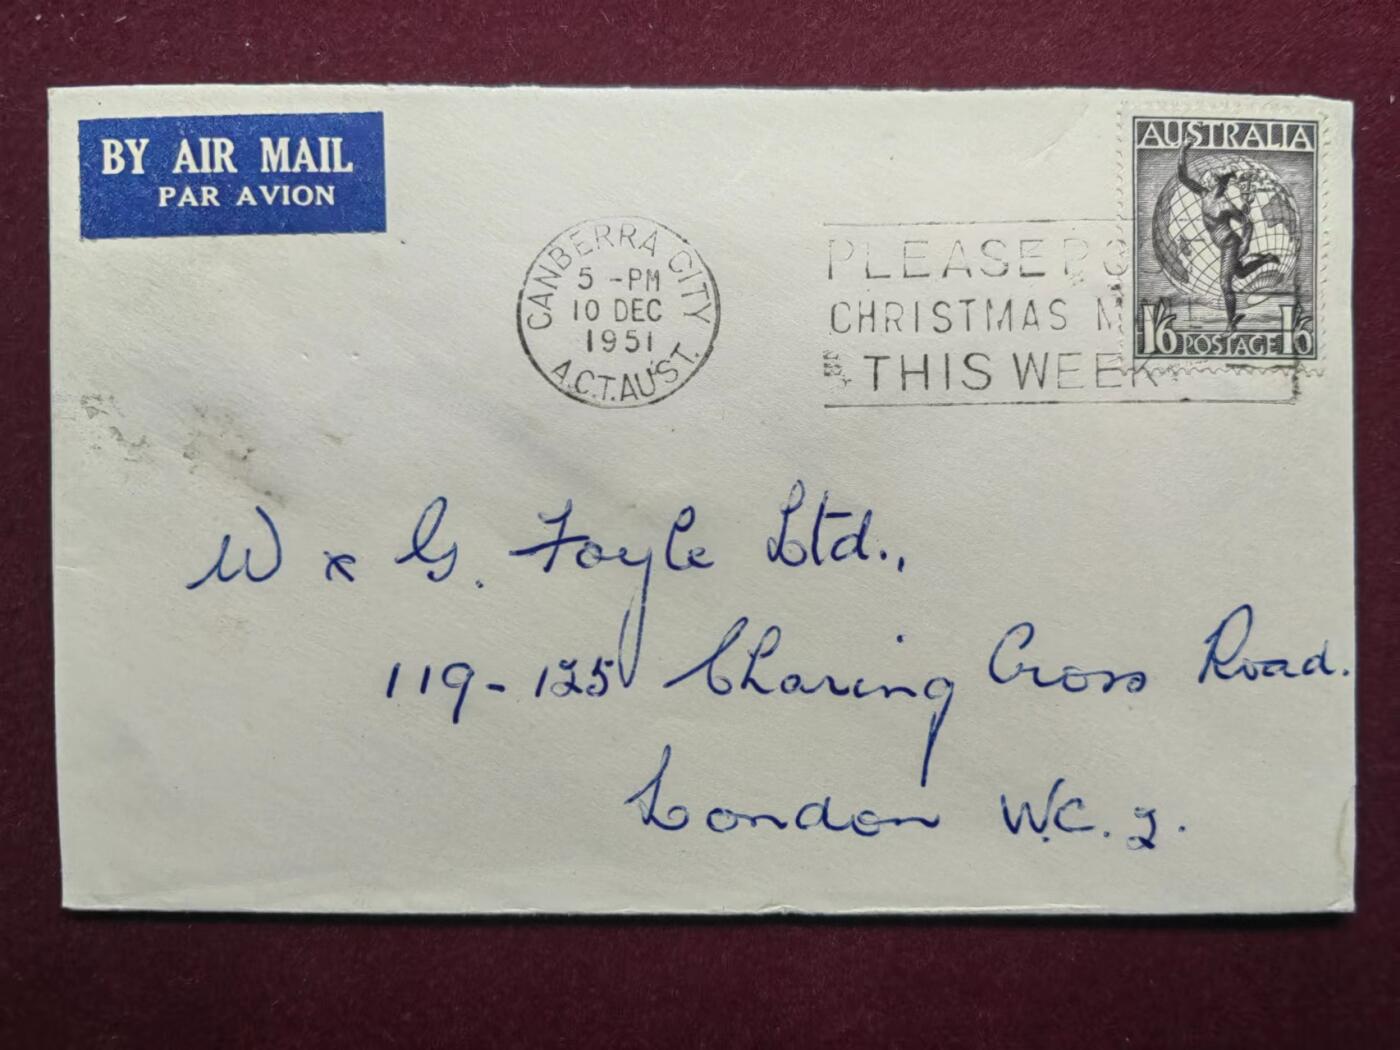 BY AIR MAIL
PAR AVION
AUSTRALIA
1/6 POSTAGE 1/6
CANBERRA CITY
5 -PM
10 DEC
1951
A.C.T. AUST.
PLEASE
CHRISTMAS
THIS WEEK
W & G. Foyle Ltd.,
119-125 Charing Cross Road.
London W.C. 2.